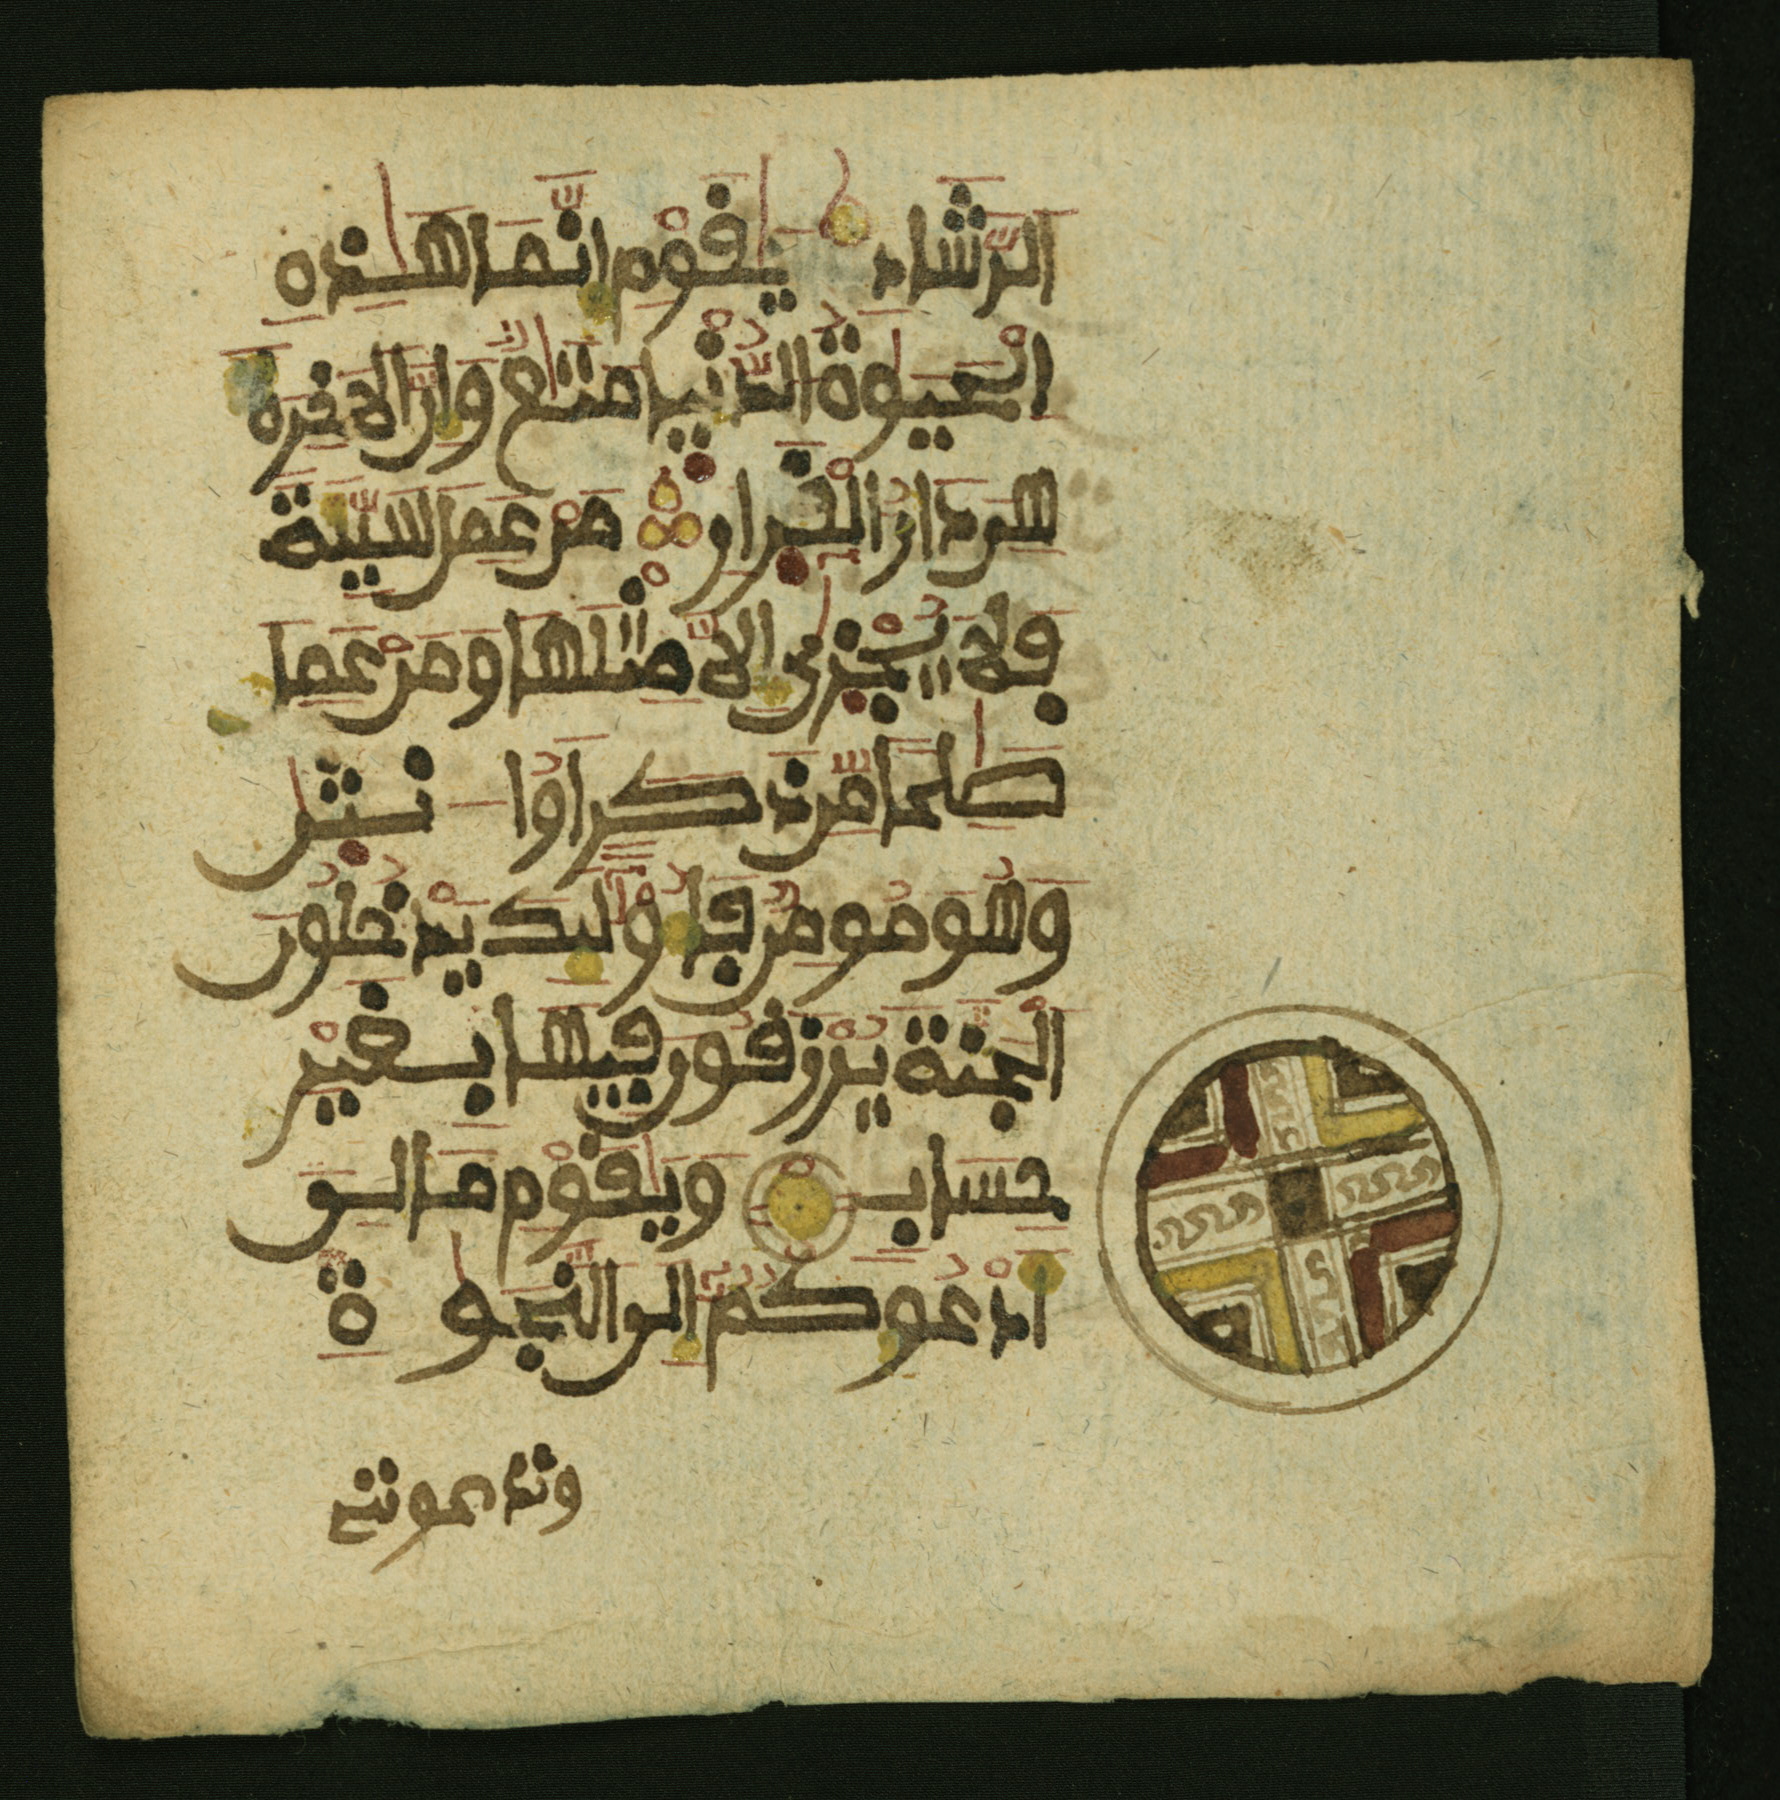 الرَّشَادِ يَٰقَوْمِ إِنَّمَا هَٰذِهِ
الْحَيَوٰةُ الدُّنْيَا مَتَٰعٌ وَإِنَّ الَاخِرَةَ
هِيَ دَارُ الْقَرَارِ مَنْ عَمِلَ سَيِّئَةً
فَلَا يُجْزَىٰ إِلَّا مِثْلَهَا وَمَنْ عَمِلَ
صَٰلِحًا مِّن ذَكَرٍ اَوُ انثَىٰ
وَهُوَ مُومِنٌ فَأُوْلَٰٓئِكَ يَدْخُلُونَ
الْجَنَّةَ يُرْزَقُونَ فِيهَا بِغَيْرِ
حِسَابٍ وَيَٰقَوْمِ مَا لِيَ
أَدْعُوكُمُ إِلَى النَّجَوٰةِ
وتدعوننے